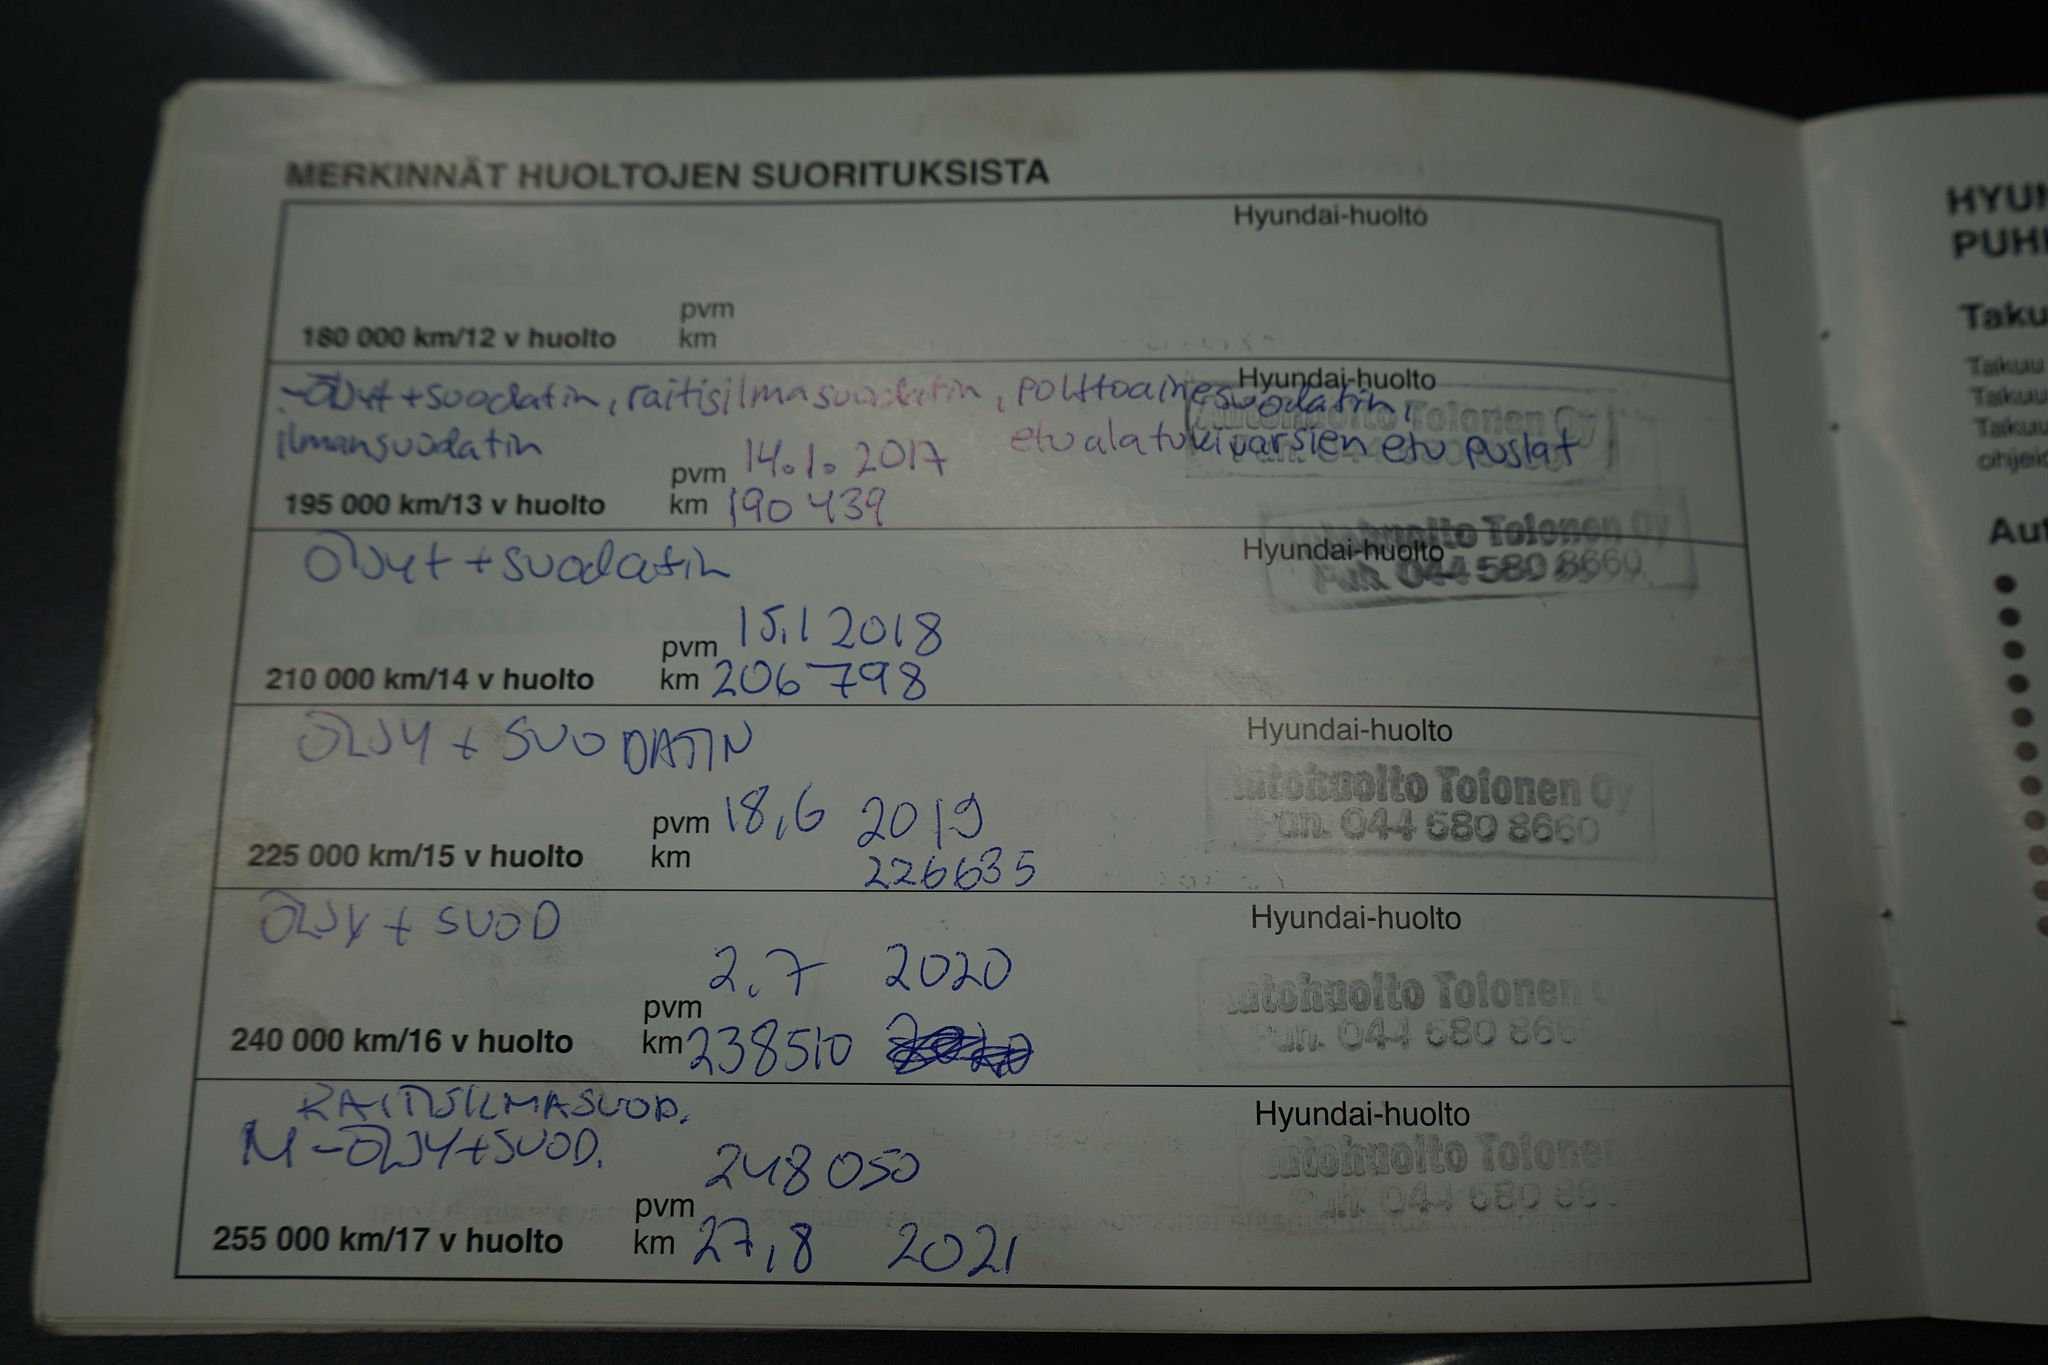 MERKINNÄT HUOLTOJEN SUORITUKSISTA
Hyundai-huolto
pvm
180 000 km/12 v huolto km
Hyundai-huolto
-Öljyt + suodatin, raitisilmasuodatin, polttoainesuodatin,
ilmansuodatin etu alatukivarsien etu puslat
Autohuolto Tolonen Oy
pvm 14.1.2017
195 000 km/13 v huolto km 190 439
Autohuolto Tolonen Oy
Hyundai-huolto
Puh. 044 580 8660
Öljyt + suodatin
pvm 15.1 2018
210 000 km/14 v huolto km 206 798
Hyundai-huolto
ÖLJY + SUODATIN
Autohuolto Tolonen Oy
Puh. 044 580 8660
pvm 18,6 2019
225 000 km/15 v huolto km 226635
Hyundai-huolto
ÖLJY + SUOD
Autohuolto Tolonen
Puh. 044 580 866
pvm 2.7 2020
240 000 km/16 v huolto km 238510
Hyundai-huolto
RAITISILMASUOD.
M-ÖLJY+SUOD.
Autohuolto Tolonen
Puh. 044 580 86
pvm 248 050
255 000 km/17 v huolto km 27,8 2021
HYUN
PUH
Taku
Takuu
Takuu
Takuu
ohjei
Aut